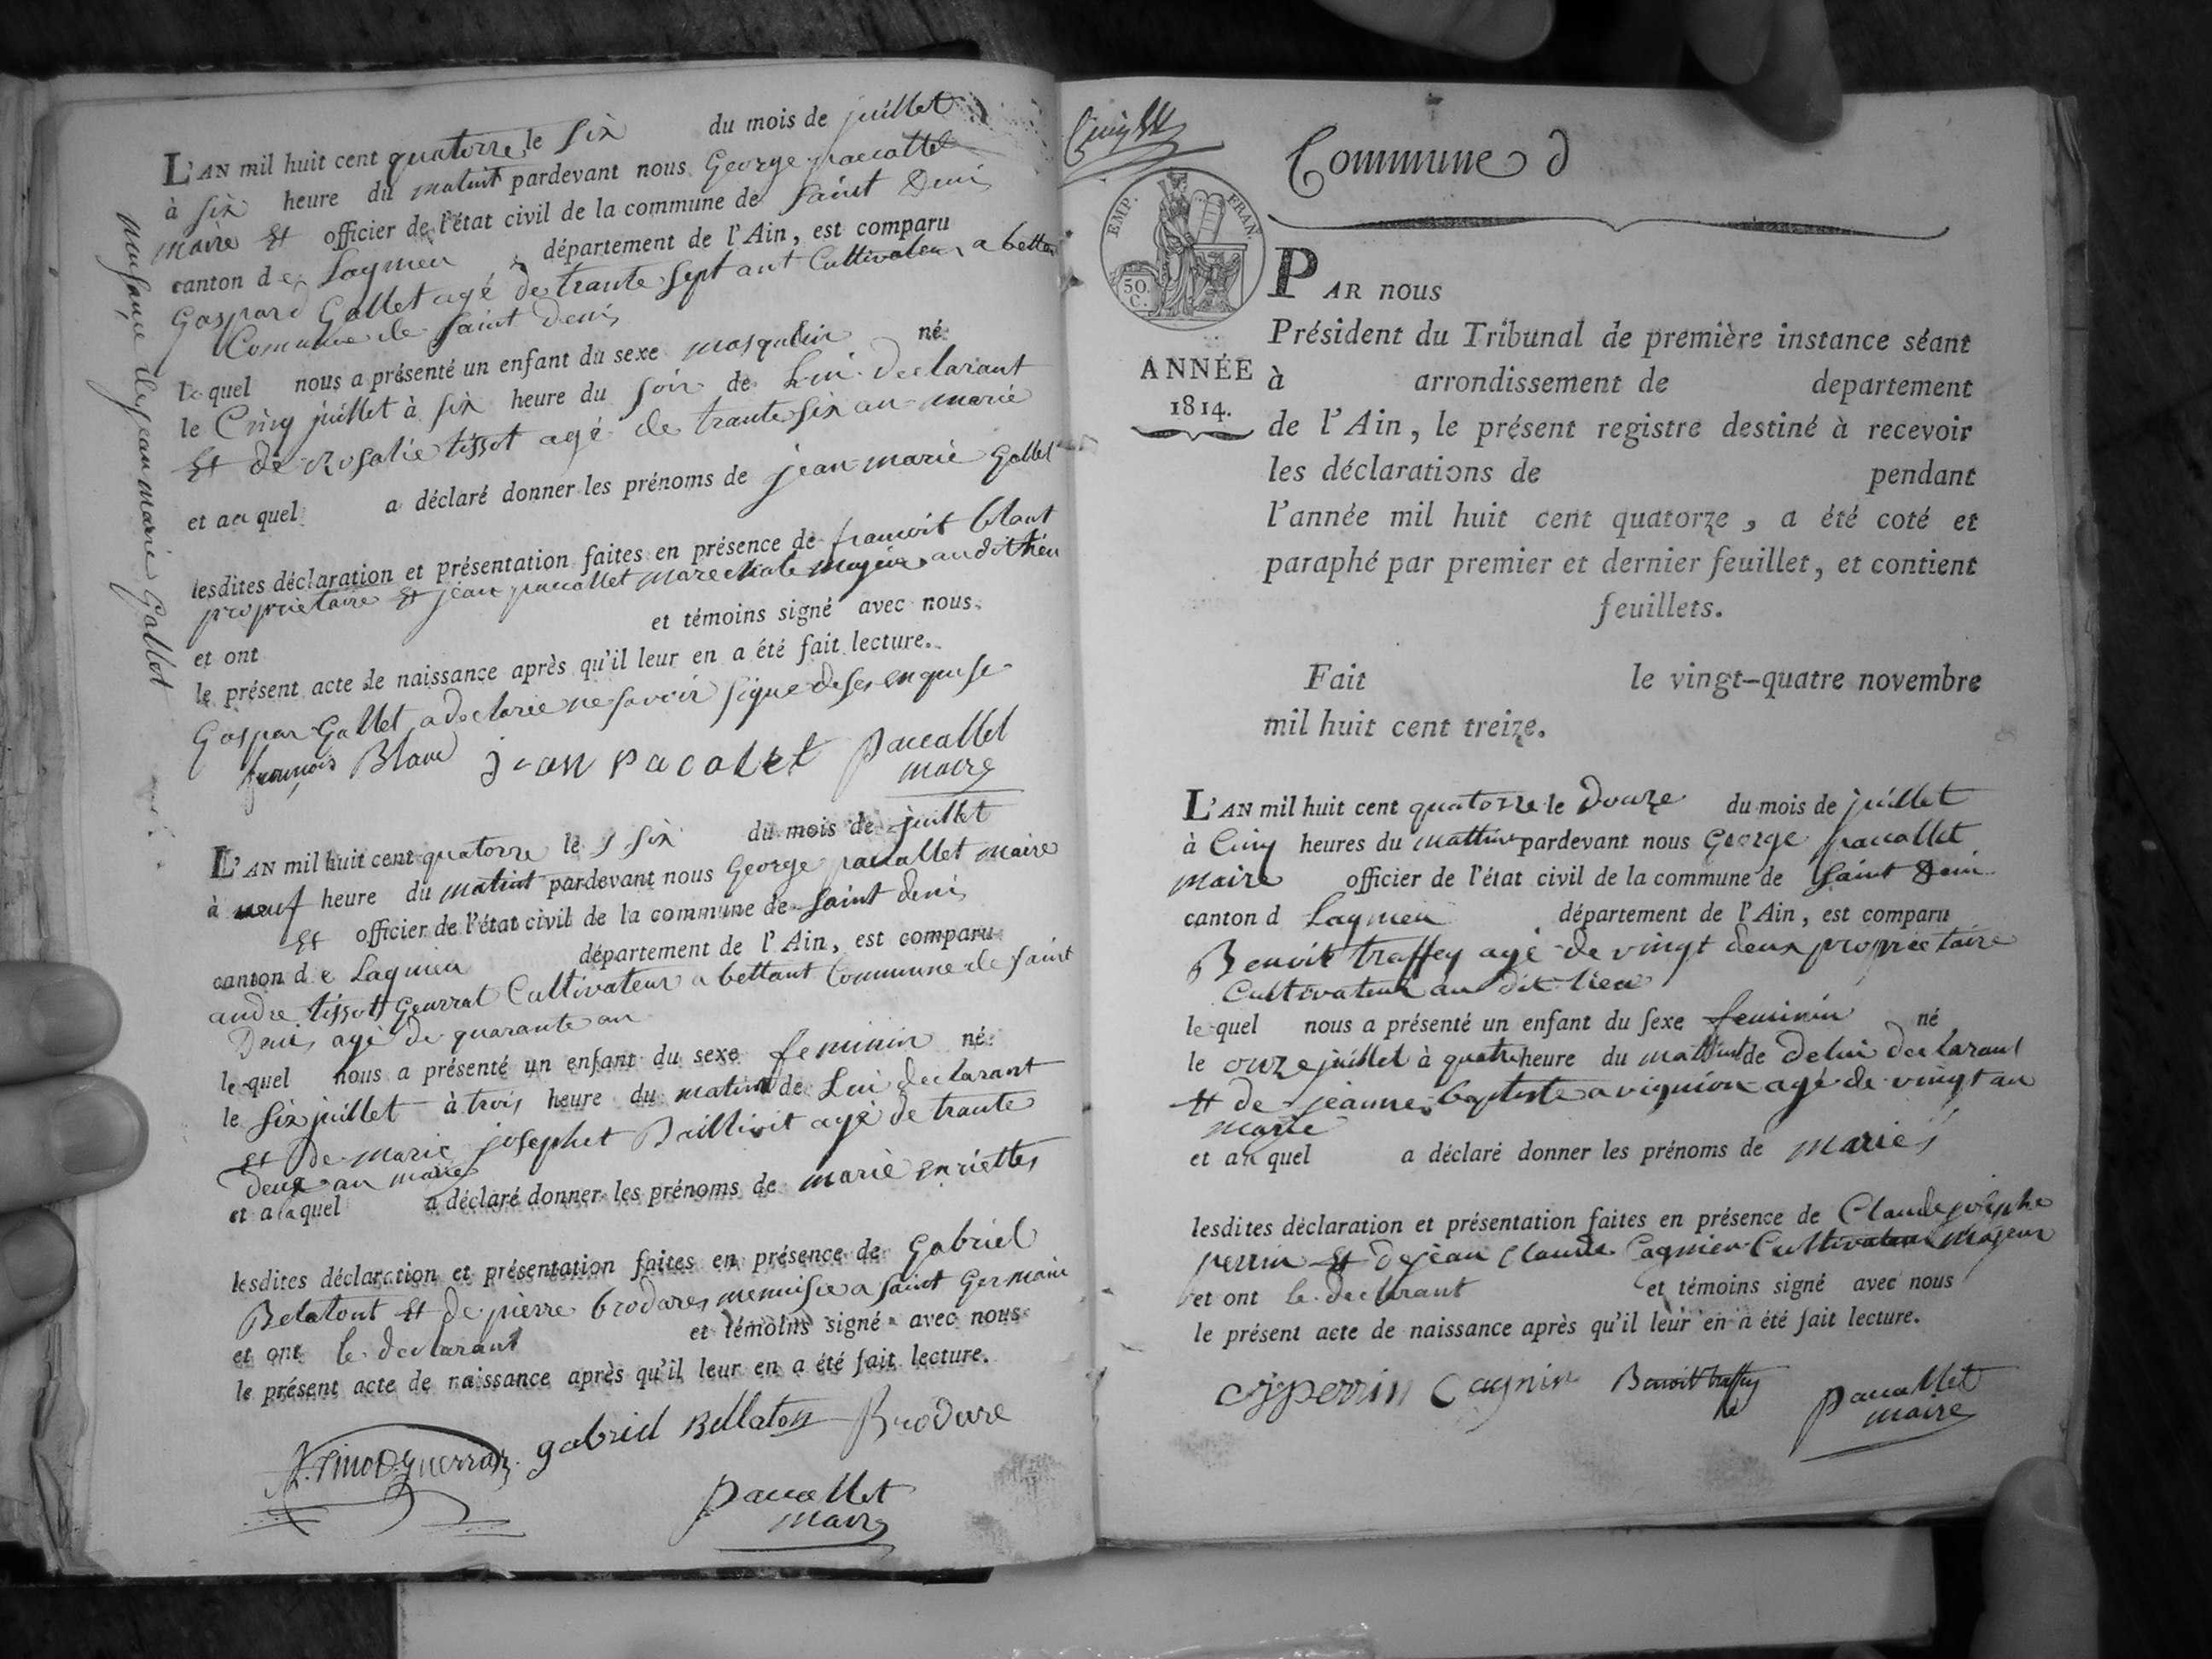 L'AN mil huit cent quatorze le six du mois de juillet
à six heure du matint pardevant nous George paccallet
maire et officier de l'état civil de la commune de saint Denis
canton de Lagnieu département de l'Ain, est comparu
Gaspard Gallet agé de trante sept ant Cultivateur a bettan
Comune de saint denis
lequel nous a présenté un enfant du sexe masqulin né
le Cinq juillet à six heure du soir de Lui declarant
et de Rosalie tissot agé de trante six an marié
et au quel a déclaré donner les prénoms de jean marie Gallet
lesdites déclaration et présentation faites en présence de francoit blant
proprietaire et jean pacallet marechale majeur audit lieu
et ont et témoins signé avec nous
le présent acte de naissance après qu'il leur en a été fait lecture.
Gaspar Gallet a declarie ne savoir signe de ses enquise
françois Blanc jean pacalet paccallet
maire
naisançe de jean marie Gallet
L'AN mil huit cent quatorze le six du mois de juillet
à neuf heure du matint pardevant nous George pacallet maire
et officier de l'état civil de la commune de saint denis
canton de Lagnieu département de l'Ain, est comparu
andre tissot Geurrat Cultivateur a bettant Commune de saint
Denis agé de quarante an
le quel nous a présenté un enfant du sexe feminin né
le six juillet à trois heure du matint de Lui declarant
et De marie josephet Baillivit agé de trante
deux an marié
et a la quel a déclaré donner les prénoms de marie enriette
lesdites déclaration et présentation faites en présence de Gabriel
Belatont et de pierre brodare menuisie a saint Germain
et ont le declarant et témoins signé avec nous
le présent acte de naissance après qu'il leur en a été fait lecture.
gabriel Bellaton Brodare
paccallet
maire
Commune d
EMP. FRAN.
50.
C.
ANNÉE
1814.
PAR nous
Président du Tribunal de première instance séant
à arrondissement de departement
de l'Ain, le présent registre destiné à recevoir
les déclarations de pendant
l'année mil huit cent quatorze, a été coté et
paraphé par premier et dernier feuillet, et contient
feuillets.
Fait le vingt-quatre novembre
mil huit cent treize.
L'AN mil huit cent quatorze le douze du mois de juillet
à Cinq heures du mattint pardevant nous George paccallet
maire officier de l'état civil de la commune de saint Denis
canton d Lagnieu département de l'Ain, est comparu
Benoit traffey agé de vingt deux proprietaire
Cultivateur au dit lieu
le quel nous a présenté un enfant du sexe feminin né
le onze juillet à quatre heure du mattint de de lui declarant
et de jeanne baptiste avignion agé de vingt an
marié
et au quel a déclaré donner les prénoms de marie
lesdites déclaration et présentation faites en présence de Claude josephe
perrin et de jean claude Cagnien Cultivateur majeur
et ont le declarant et témoins signé avec nous
le présent acte de naissance après qu'il leur en a été fait lecture.
cjperrin Cagnin Benoit traffey paccallet
maire